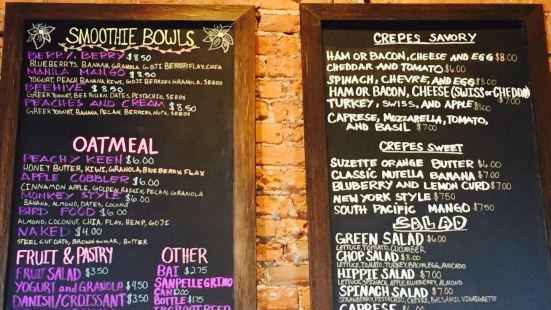 SMOOTHIE BOWLS
BERRY, BERRY $8.50
BLUEBERRIES, BANANA, GRANOLA, GOJI BERRIES, FLAX, CHIA
MANILA MANGO $8.50
YOGURT, PEACH, BANANA, KIWI, GOJI BERRIES, GRANOLA, SEEDS
BEEHIVE $8.50
GREEK YOGURT, BEE POLLEN, DATES, PISTACHIO, SEEDS
PEACHES AND CREAM $8.50
GREEK YOGURT, BANANA, PECAN, BERRIES, NUTS, SEEDS
OATMEAL
PEACHY KEEN $6.00
HONEY BUTTER, KIWI, GRANOLA, BLUEBERRY, FLAX
APPLE COBBLER $6.00
CINNAMON APPLE, GOLDEN RAISIN, PECAN, GRANOLA
MONKEY STYLE $6.00
BANANA, ALMOND, DATES, COCONUT
BIRD FOOD $6.00
ALMOND, COCONUT, CHIA, FLAX, HEMP, GOJI
NAKED $4.00
STEEL CUT OATS, BROWN SUGAR, BUTTER
FRUIT & PASTRY
FRUIT SALAD $3.50
YOGURT AND GRANOLA $4.50
DANISH/CROISSANT $3.50
OTHER
BAI $2.75
SANPELLEGRINO
CAN $2.00
BOTTLE $1.75
CREPES SAVORY
HAM OR BACON, CHEESE AND EGG $8.00
CHEDDAR AND TOMATO $6.00
SPINACH, CHEVRE, AND EGG $8.00
HAM OR BACON, CHEESE (SWISS OR CHEDDAR)
TURKEY, SWISS, AND APPLE $8.00 $7.00
CAPRESE, MOZZARELLA, TOMATO,
AND BASIL $7.00
CREPES SWEET
SUZETTE ORANGE BUTTER $6.00
CLASSIC NUTELLA BANANA $7.00
BLUBERRY AND LEMON CURD $7.00
NEW YORK STYLE $7.50
SOUTH PACIFIC MANGO $7.50
SALAD
GREEN SALAD $6.00
LETTUCE, TOMATO, CUCUMBER
CHOP SALAD $8.00
LETTUCE, TOMATO, TURKEY, BACON, EGG, AVOCADO
HIPPIE SALAD $7.00
LETTUCE, SPINACH, APPLE, BLUEBERRY, ALMOND
SPINACH SALAD $7.00
STRAWBERRY, PISTACHIO, CHEVRE, BALSAMIC VINAIGRETTE
CAPRESE